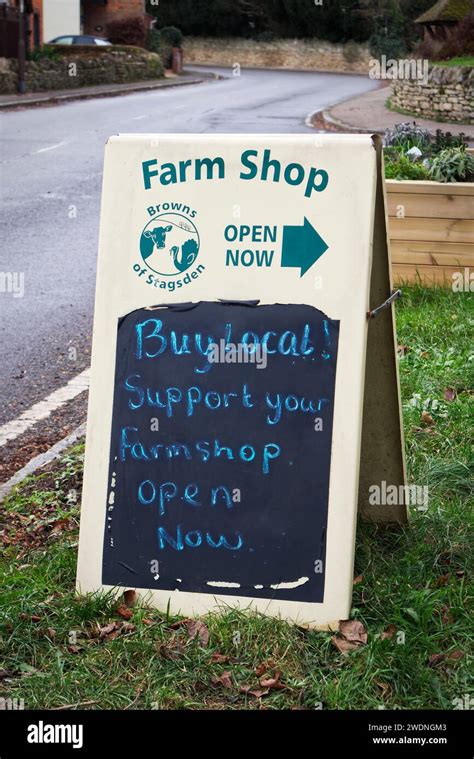 Farm Shop
Browns
of Stagsden
OPEN
NOW
Buy Local!
Support your
Farmshop
Open
Now.
alamy
alamy
Image ID: 2WDNGM3
www.alamy.com